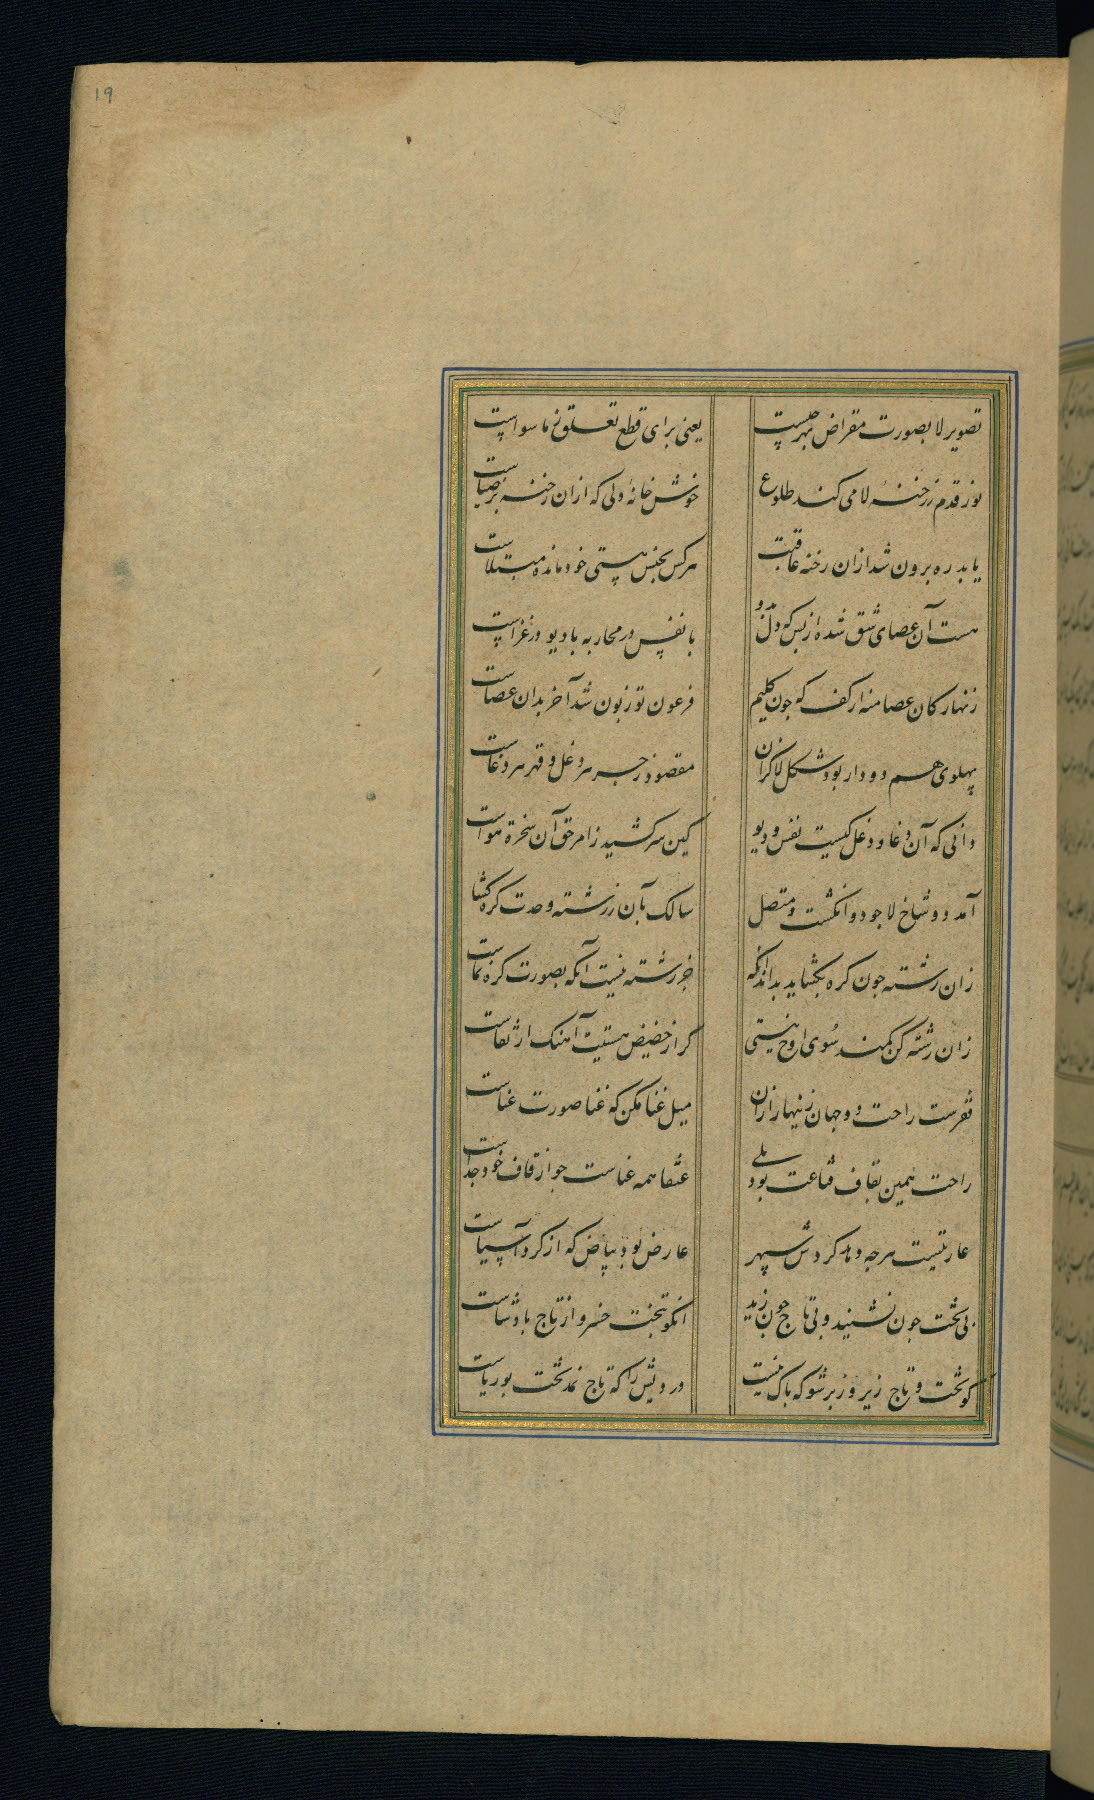 19
تصویر لا بصورت مقراض بهر چیست
یعنی برای قطع تعلق ز ما سواست
نور قدم ز رخنهٔ لا می کند طلوع
خوش خانهٔ دلی که ازان رخنه پر ضیاست
یابد ره برون شد ازان رخنه عاقبت
هر کس بحبس هستی خود مانده مبتلاست
هست آن عصای شق شده از بس که دل بدو
با نفس در محاربه با دیو در غزاست
زنهار کان عصا منه از کف که چون کلیم
فرعون تو زبون شد آخر بدان عصاست
پهلوی هم دو دار بود شکل لا کزان
مقصود زجر هر دغل و قهر هر دغاست
دانی که آن دغا و دغل کیست نفس و دیو
کین سر کشید ز امر حق آن سخرهٔ هواست
آمد دو شاخ لا چو دو انگشت متصل
سالک بآن ز رشته وحدت کره کشا
زان رشته چون کره بکشاید بداند آنکه
جز رشته نیست آنکه بصورت کره نماست
زان رشته کن کمند سوی اوج نیستی
کر از حضیض هستیت آهنک ارتقاست
فقرست راحت دو جهان زینهار ازان
میل غنا مکن که غنا صورت عناست
راحت همین بقاف قناعت بود بلی
عنقا همه عناست چو از قاف خود جداست
عاریتیست هر چه دهد کردش سپهر
عارض بود بیاض که از کرد آسیاست
بی تخت چون نشیند و بی تاج چون زید
آنکو بتخت خسرو و از تاج پادشاست
کو تخت و تاج زیر و زبر شو که باک نیست
درویش را که تاج نمد تخت بوریاست